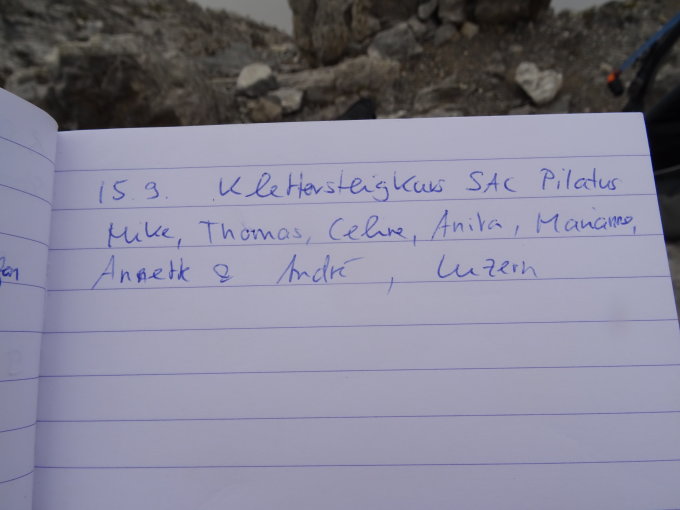 15.9. Klettersteigkurs SAC Pilatus
Mike, Thomas, Anita, Marianne,
Annette & André, Luzern